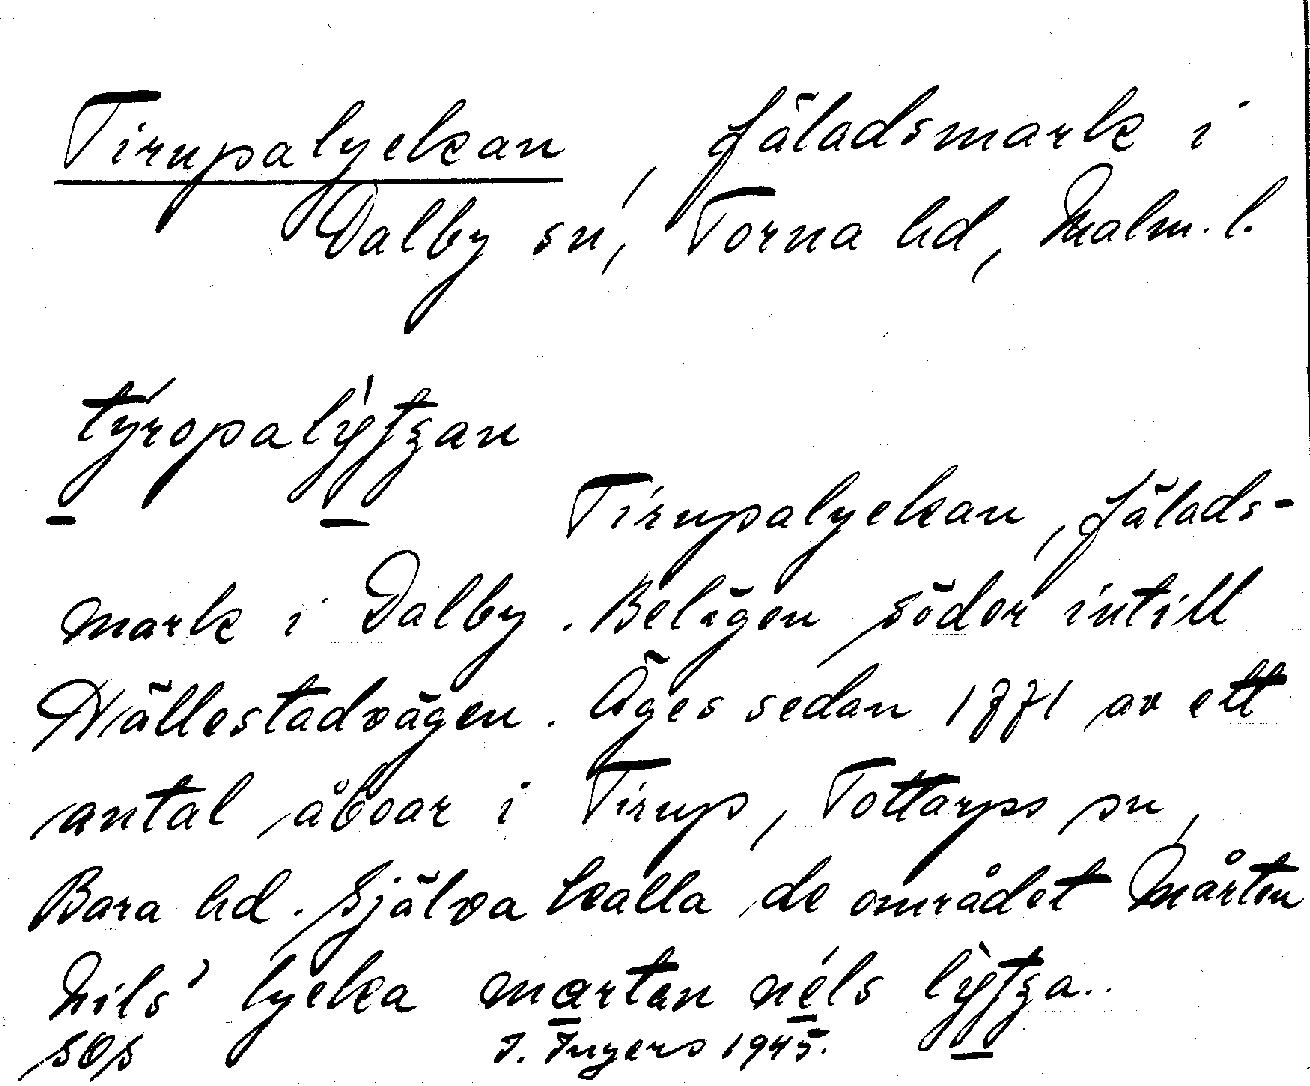 Tirupalyckan, fäladsmark i
Dalby sn, Torna hd, Malm. l.
týropalỳtʒan
Tirupalyckan, fälads-
mark i Dalby. Belägen söder intill
Hällestadvägen. Äges sedan 1771 av ett
antal åboar i Tirup, Tottarps sn,
Bara hd. Själva kalla de området Mårten
Nils' lycka marten néls lỳtʒa..
SOS I. Ingers 1945.